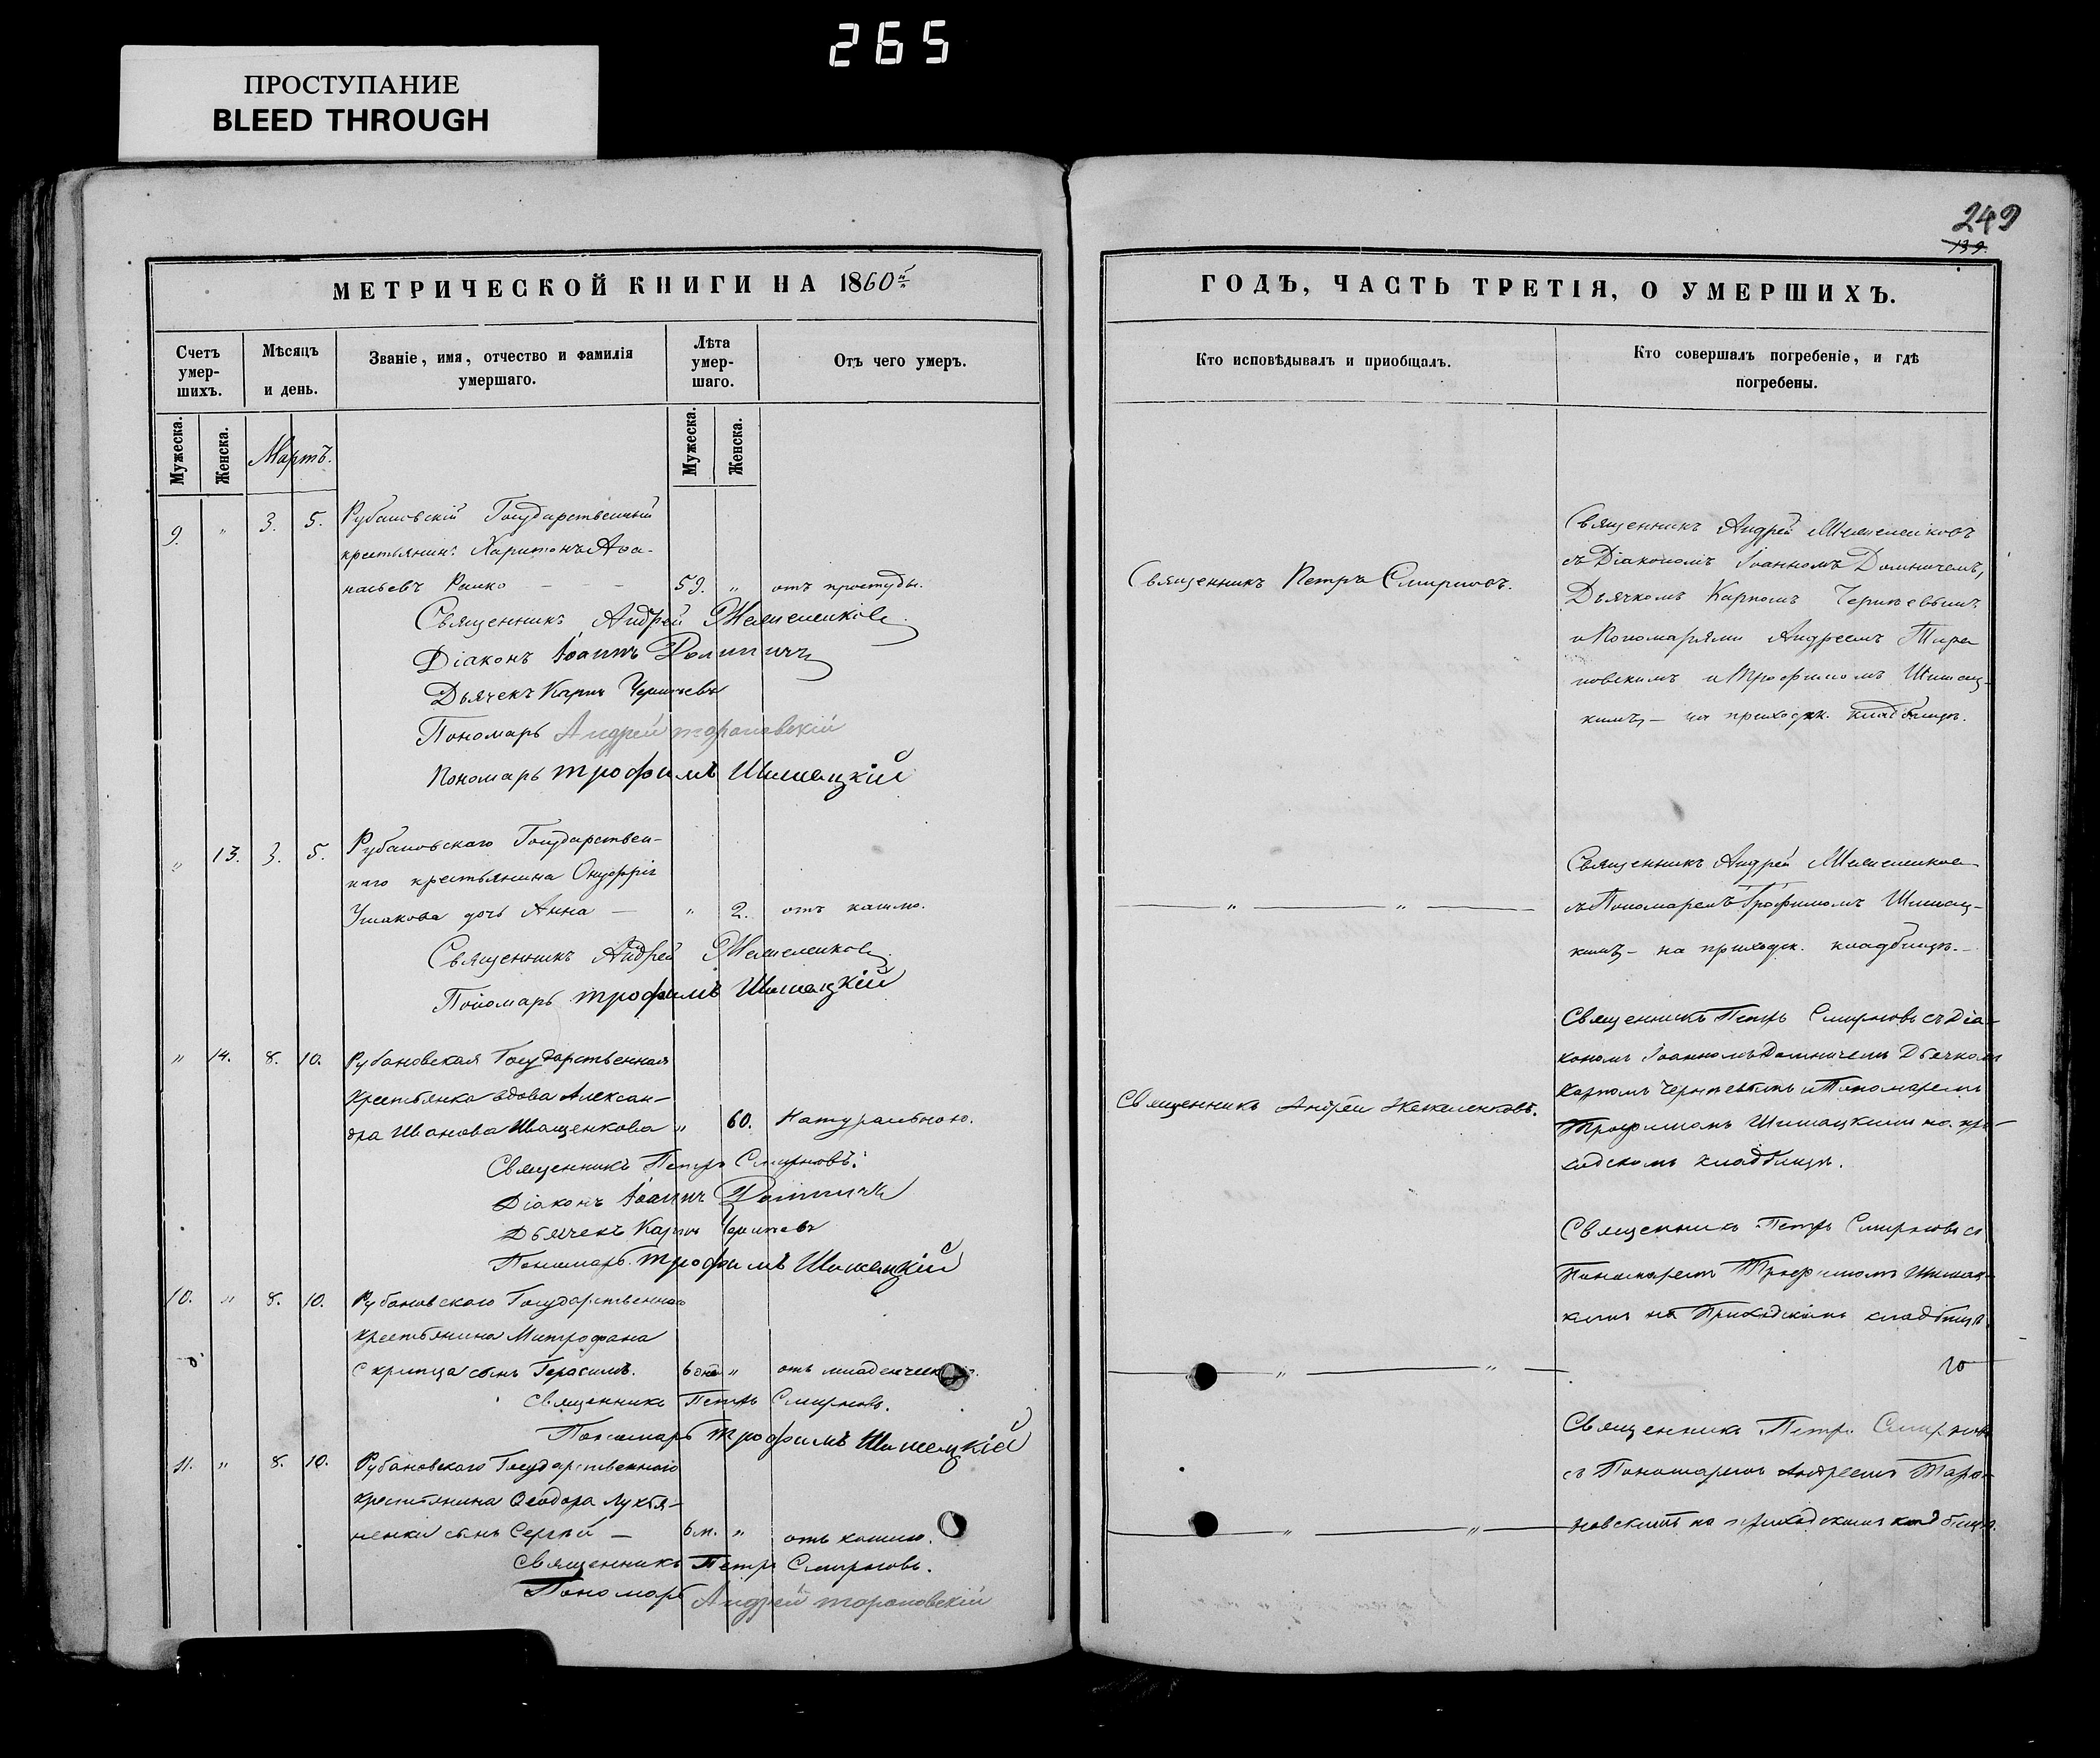 265
ПРОСТУПАНИЕ
BLEED THROUGH
249
139.
МЕТРИЧЕСКОЙ КНИГИ НА 1860й
Счетъ умер-шихъ.
Мѣсяцъ и день.
Званіе, имя, отчество и фамилія умершаго.
Лѣта умер-шаго.
Отъ чего умеръ.
Мужеска.
Женска.
Мартъ.
Мужеска.
Женска.
9. " 3. 5. Рубановскій Государственный
крестьянинъ Харитонъ Аѳа-
насьевъ 59. " отъ простуды.
Священникъ Андрей
Діаконъ Іоаннъ Долиничъ
Дьячекъ Карпъ
Пономарь Андрей
Пономарь Трофимъ Шишацкій
" 13. 3. 5. Рубановскаго Государствен-
наго крестьянина Онуфрія
Ушакова дочь Анна — " 2. отъ кашлю.
Священникъ Андрей
Пономарь Трофимъ Шишацкій
" 14. 8. 10. Рубановская Государственная
крестьянка вдова Алексан-
дра Иванова Иващенкова " 60. Натуральною.
Священникъ Петръ Смирновъ.
Діаконъ Іоаннъ Долиничъ
Дьячекъ Карпъ
Пономарь Трофимъ Шишацкій
10. " 8. 10. Рубановскаго Государственнаго
крестьянина Митрофана
сынъ Герасимъ. 6 дней " отъ младенческой.
Священникъ Петръ Смирновъ.
Пономарь Трофимъ Шишацкій
11. " 8. 10. Рубановскаго Государственнаго
крестьянина Ѳеодора Лухтя-
ненки сынъ Сергѣй — 6 м. " отъ кашлю.
Священникъ Петръ Смирновъ.
Пономарь Андрей
ГОДЪ, ЧАСТЬ ТРЕТІЯ, О УМЕРШИХЪ.
Кто исповѣдывалъ и приобщалъ.
Кто совершалъ погребеніе, и гдѣ погребены.
Священникъ Петръ Смирновъ.
Священникъ Андрей
съ Діакономъ Іоанномъ Долиничемъ,
Дьячкомъ Карпомъ
и Пономарями Андреемъ Тара-
новскимъ и Трофимомъ Шишац-
кимъ, — на приходск. кладбищѣ.
— " — " —
Священникъ Андрей
съ Пономаремъ Трофимомъ Шишац-
кимъ — на приходск. кладбищѣ. —
Священникъ Андрей
Священникъ Петръ Смирновъ съ Діа-
кономъ Іоанномъ Долиничемъ Дьячкомъ
Карпомъ и Пономаремъ
Трофимомъ Шишацкимъ на при-
ходскомъ кладбищѣ.
— " — " —
Священникъ Петръ Смирновъ съ
Пономаремъ Трофимомъ Шишац-
кимъ на Приходскомъ кладбищѣ.
— " — " —
Священникъ Петръ Смирновъ
съ Пономаремъ Андреемъ Тара-
новскимъ на приходскомъ кладбищѣ.